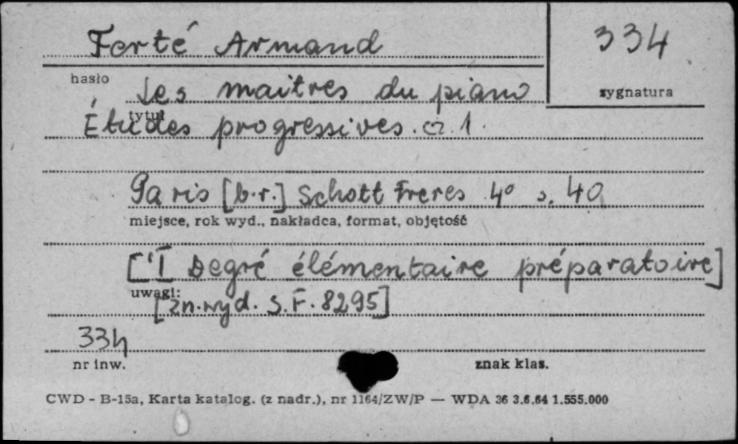 Ferté Armand
334
hasło
sygnatura
Les maîtres du piano
tytuł
Études progressives. cz. 1.
Paris [b.r.] Schott Freres 4° s. 40
miejsce, rok wyd., nakładca, format, objętość
["I Degré élémentaire préparatoire]
uwagi:
[zn. wyd. S.F. 8295]
334
nr inw.
znak klas.
CWD - B-15a, Karta katalog. (z nadr.), nr 1164/ZW/P — WDA 36 3.6.64 1.555.000